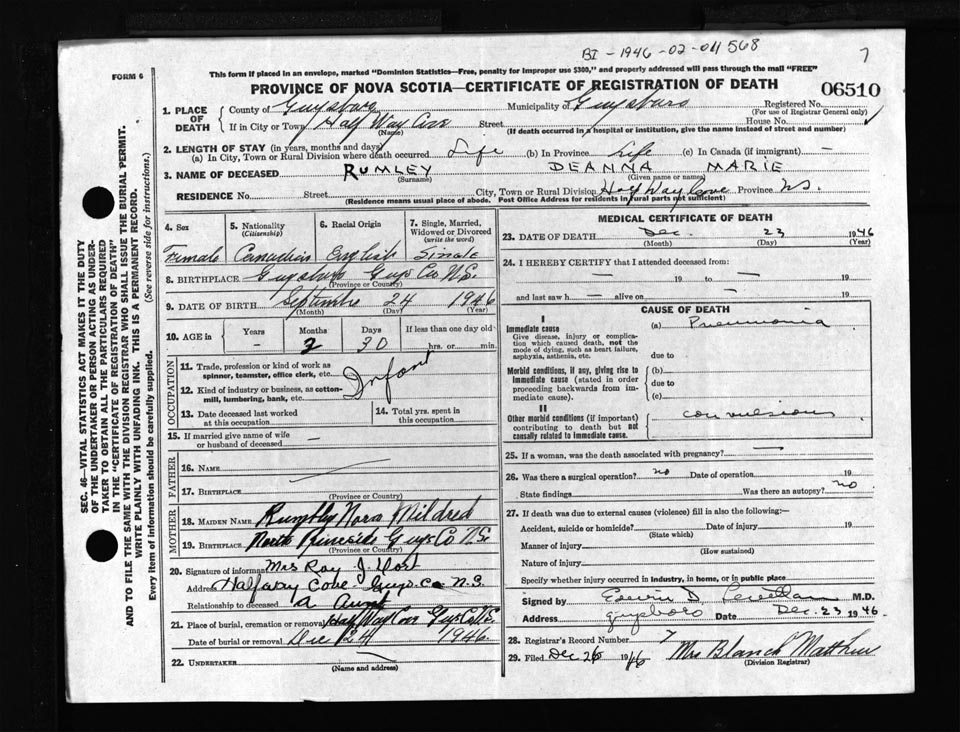 BI-1946-02-04568
7
FORM 6
This form if placed in an envelope, marked "Dominion Statistics—Free, penalty for improper use $300," and properly addressed will pass through the mail "FREE"
PROVINCE OF NOVA SCOTIA—CERTIFICATE OF REGISTRATION OF DEATH
06510
1. PLACE OF DEATH
County of Guysboro Municipality of Guysboro Registered No.
(For use of Registrar General only)
If in City or Town Half Way Cove Street House No.
(Name) (If death occurred in a hospital or institution, give the name instead of street and number)
2. LENGTH OF STAY (in years, months and days)
(a) In City, Town or Rural Division where death occurred Life (b) In Province Life (c) In Canada (if immigrant) —
3. NAME OF DECEASED RUMLEY DEANNA MARIE
(Surname) (Given name or names)
RESIDENCE No. Street City, Town or Rural Division Half Way Cove Province NS.
(Residence means usual place of abode. Post Office Address for residents in rural parts not sufficient)
4. Sex 5. Nationality (Citizenship) 6. Racial Origin 7. Single, Married, Widowed or Divorced (write the word)
Female Canadian English Single
8. BIRTHPLACE Guysboro Guys Co NS.
(Province or Country)
9. DATE OF BIRTH Septembre 24 1946
(Month) (Day) (Year)
10. AGE in Years Months Days If less than one day old
— 2 30 hrs. or min.
OCCUPATION
11. Trade, profession or kind of work as spinner, teamster, office clerk, etc.
Infant
12. Kind of industry or business, as cotton-mill, lumbering, bank, etc.
13. Date deceased last worked at this occupation
14. Total yrs. spent in this occupation
15. If married give name of wife or husband of deceased —
FATHER
16. NAME
17. BIRTHPLACE
(Province or Country)
MOTHER
18. MAIDEN NAME Nora Mildred
19. BIRTHPLACE North Guys Co NS.
(Province or Country)
20. Signature of informant Mrs Roy J.
Address Halfway Cove Guys. Co N.S.
Relationship to deceased a Aunt
21. Place of burial, cremation or removal Half Way Cove Guys Co N.S.
Date of burial or removal Dec 24 1946
22. UNDERTAKER
(Name and address)
MEDICAL CERTIFICATE OF DEATH
23. DATE OF DEATH Dec. 23 1946
(Month) (Day) (Year)
24. I HEREBY CERTIFY that I attended deceased from:
— 19 to — 19
and last saw h — alive on — 19
CAUSE OF DEATH
I
Immediate cause (a) Pneumonia
Give disease, injury or complication which caused death, not the mode of dying, such as heart failure, asphyxia, asthenia, etc.
due to
Morbid conditions, if any, giving rise to immediate cause (stated in order proceeding backwards from immediate cause).
(b)
due to
(c)
II
Other morbid conditions (if important) contributing to death but not causally related to immediate cause.
convulsions
25. If a woman, was the death associated with pregnancy? —
26. Was there a surgical operation? no Date of operation 19
State findings Was there an autopsy? no
27. If death was due to external causes (violence) fill in also the following:—
Accident, suicide or homicide? Date of injury 19
(State which)
Manner of injury
(How sustained)
Nature of injury
Specify whether injury occurred in industry, in home, or in public place
Signed by M.D.
Address Guysboro Date Dec. 23 1946
28. Registrar's Record Number 7
29. Filed Dec 26 1946 Mrs Blanch
(Division Registrar)
SEC. 46—VITAL STATISTICS ACT MAKES IT THE DUTY
OF THE UNDERTAKER OR PERSON ACTING AS UNDER-
TAKER TO OBTAIN ALL THE PARTICULARS REQUIRED
IN THE "CERTIFICATE OF REGISTRATION OF DEATH"
AND TO FILE THE SAME WITH THE DIVISION REGISTRAR WHO SHALL ISSUE THE BURIAL PERMIT.
WRITE PLAINLY WITH UNFADING INK. THIS IS A PERMANENT RECORD.
Every item of information should be carefully supplied. (See reverse side for instructions.)